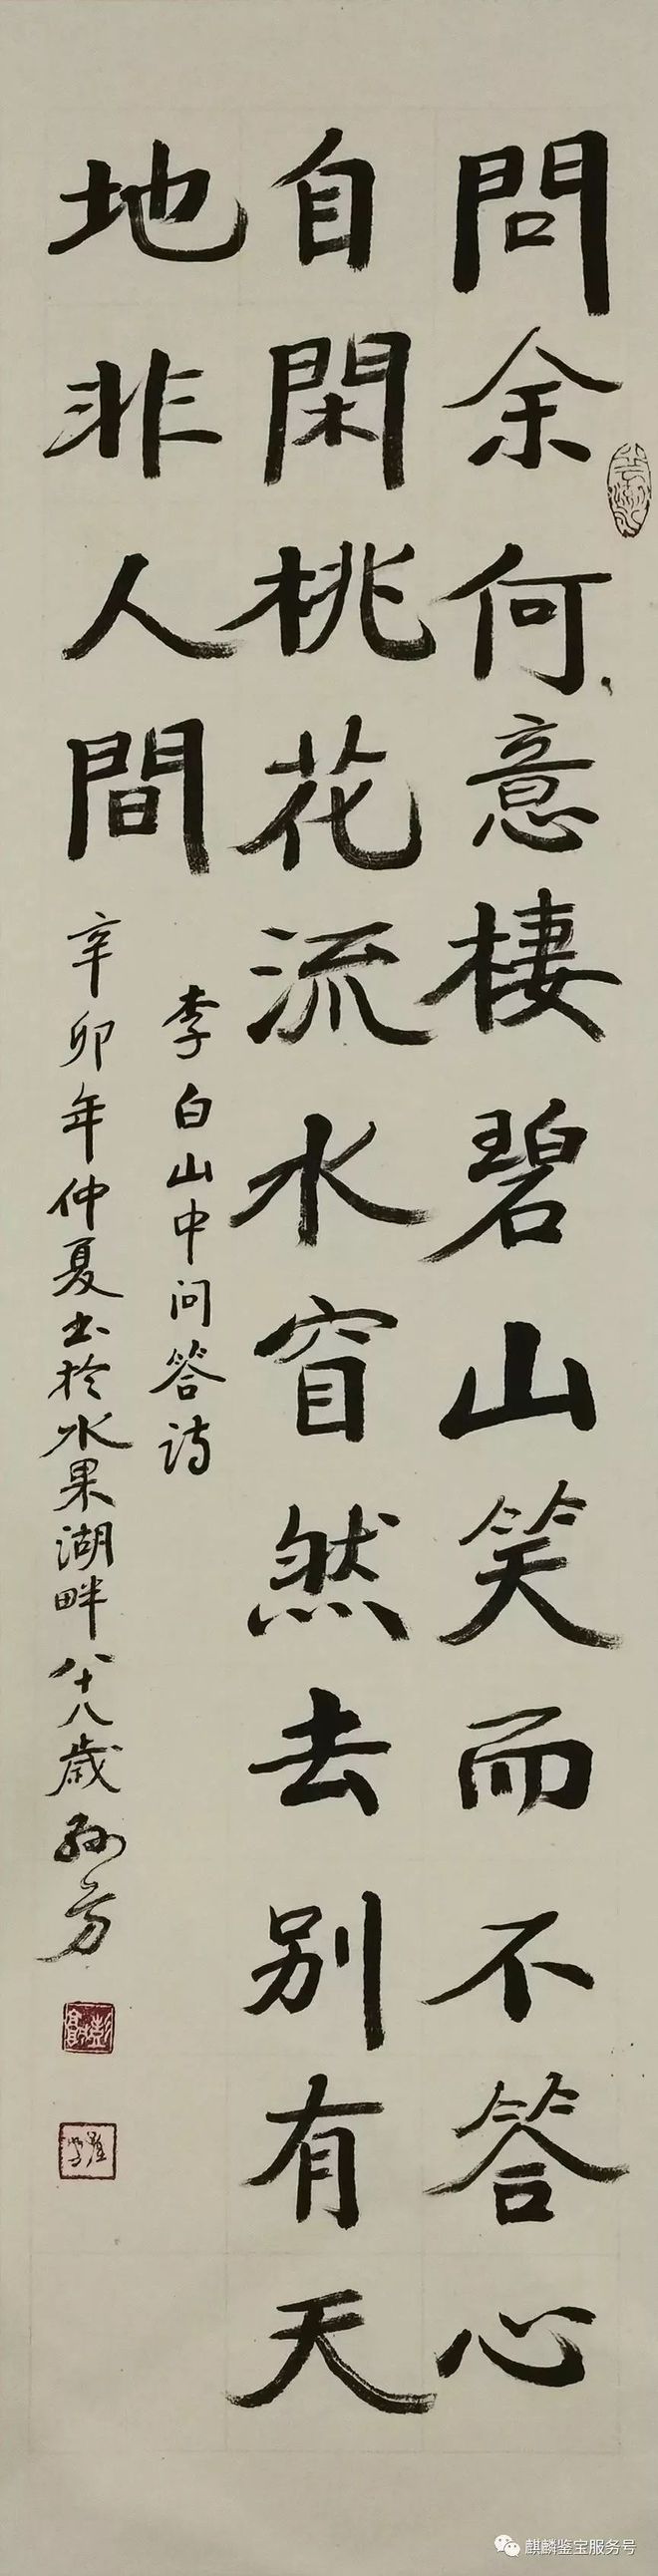 問余何意棲碧山笑而不答心
自閑桃花流水窅然去別有天
地非人間
李白山中问答诗
辛卯年仲夏书於水果湖畔八十八歲孙方
麒麟鉴宝服务号